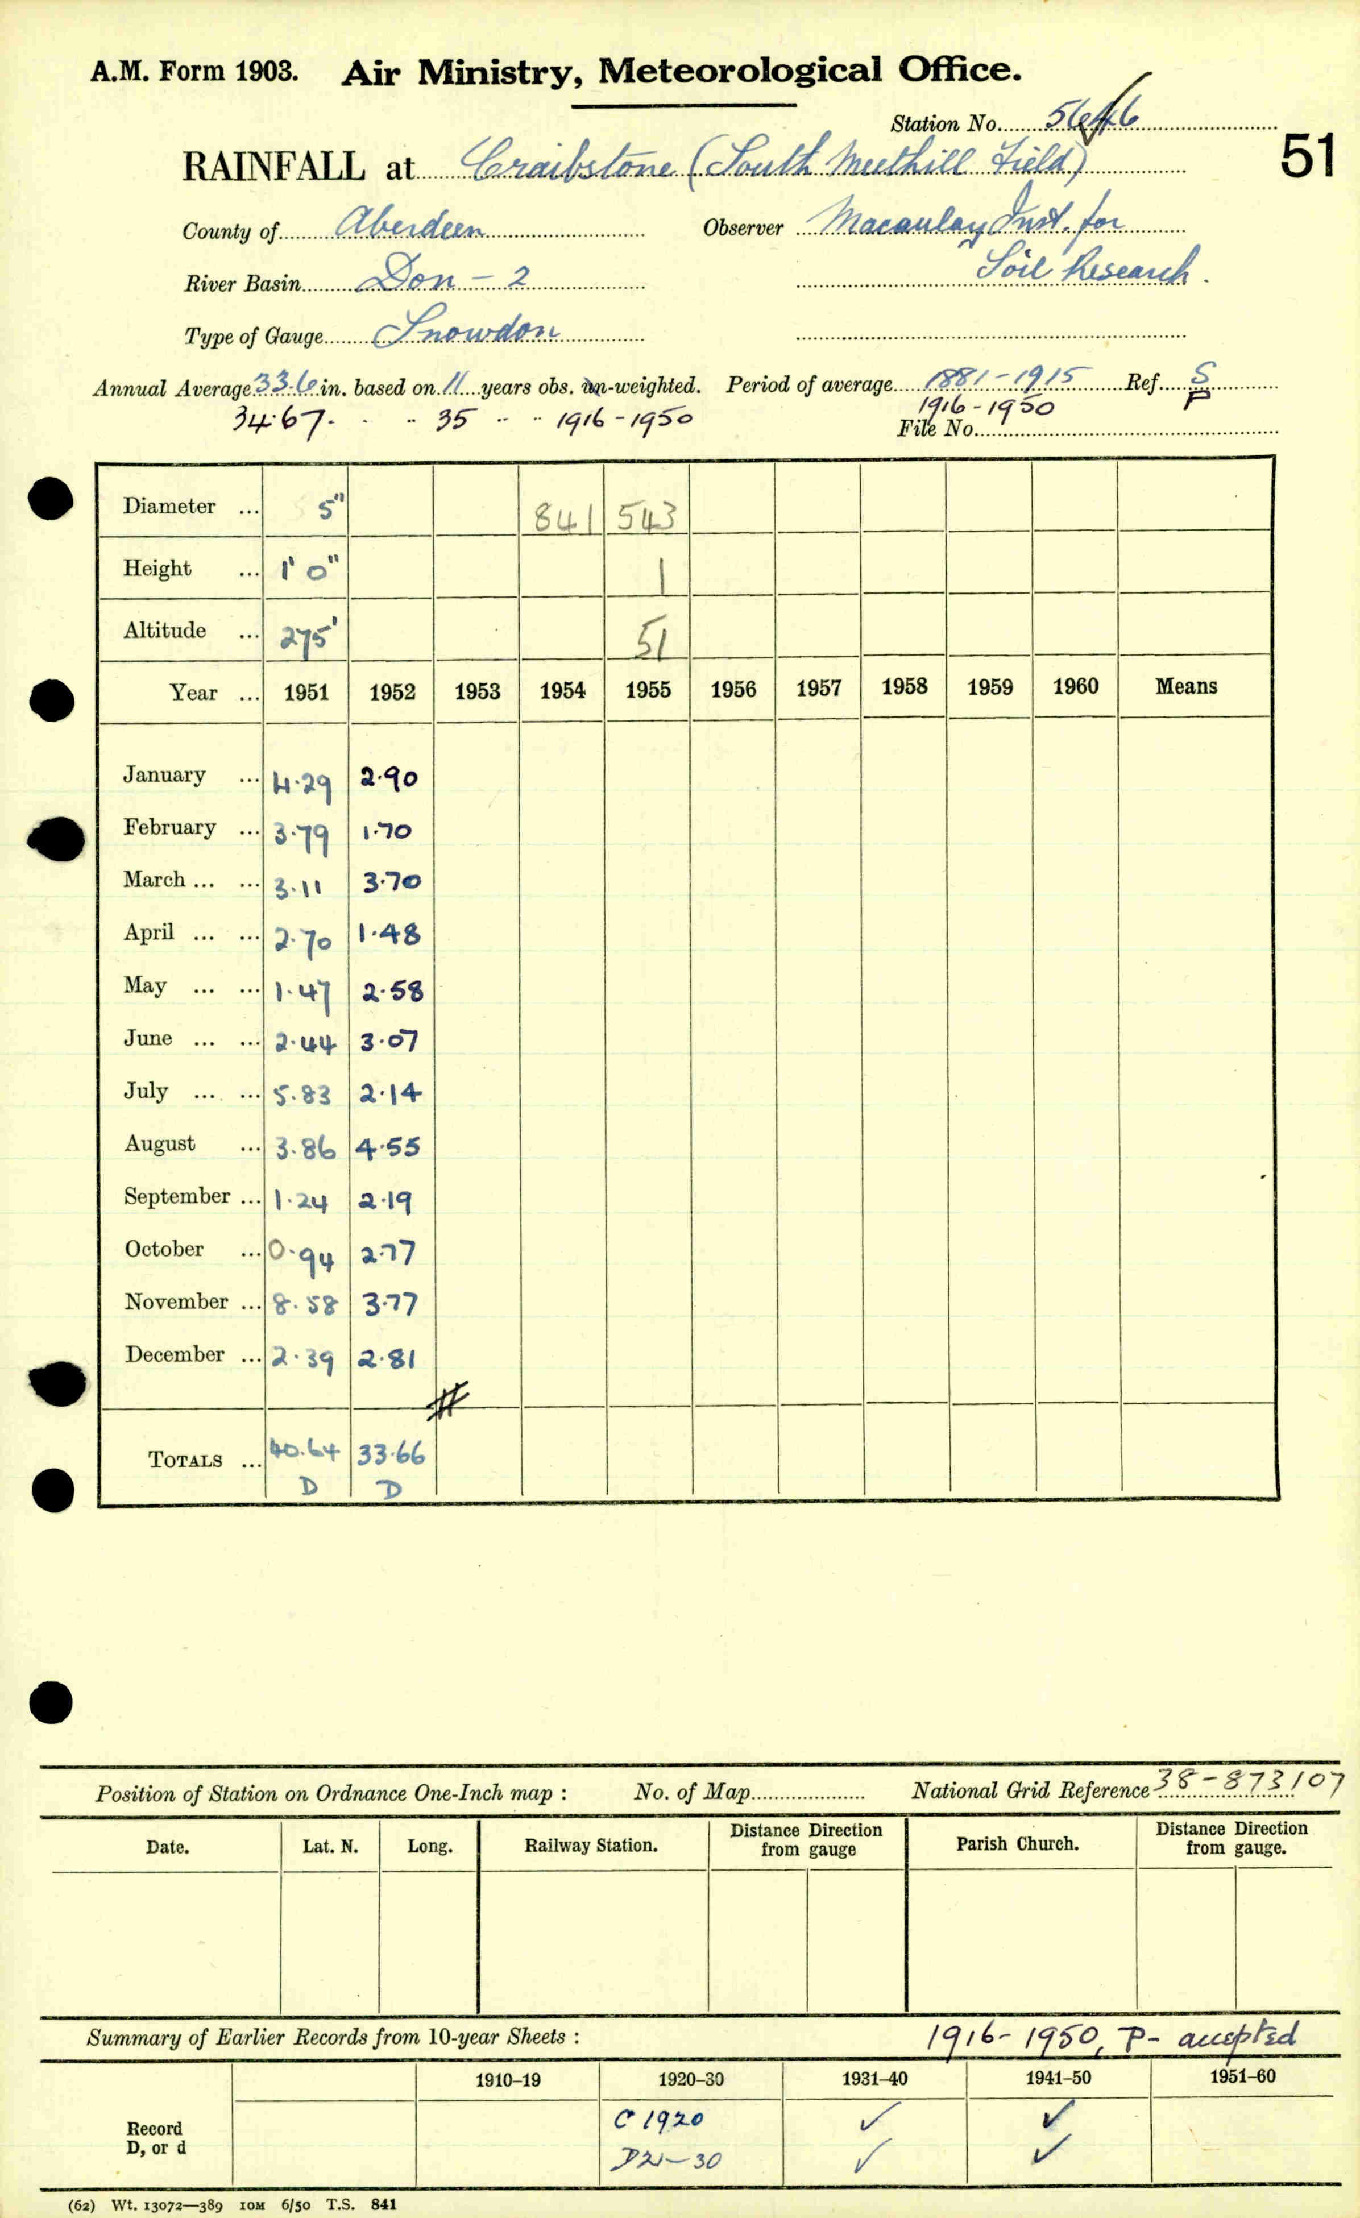 A.M. Form 1903. Air Ministry, Meteorological Office.
Station No. 5646
51
RAINFALL at Craibstone (South Meethill Field)
County of Aberdeen Observer Macaulay Inst. for
Soil Research.
River Basin Don - 2
Type of Gauge Snowdon
Annual Average 33.6 in. based on 11 years obs. un-weighted. Period of average 1881-1915 Ref. S
34.67 . . .. 35 .. .. 1916-1950 1916-1950 P
File No.
Diameter ... 5" 841 543
Height ... 1' 0" 1
Altitude ... 275' 51
Year ... 1951 1952 1953 1954 1955 1956 1957 1958 1959 1960 Means
January ... 4.29 2.90
February ... 3.79 1.70
March ... ... 3.11 3.70
April ... ... 2.70 1.48
May ... ... 1.47 2.58
June ... ... 2.44 3.07
July ... ... 5.83 2.14
August ... 3.86 4.55
September ... 1.24 2.19
October ... 0.94 2.77
November ... 8.58 3.77
December ... 2.39 2.81
#
TOTALS ... 40.64 33.66
D D
Position of Station on Ordnance One-Inch map : No. of Map National Grid Reference 38-873107
Date. Lat. N. Long. Railway Station. Distance Direction from gauge Parish Church. Distance Direction from gauge.
Summary of Earlier Records from 10-year Sheets : 1916-1950, P- accepted
1910–19 1920–30 1931–40 1941–50 1951–60
Record C 1920 ✓ ✓
D, or d D21-30 ✓ ✓
(62) Wt. 13072—389 10M 6/50 T.S. 841